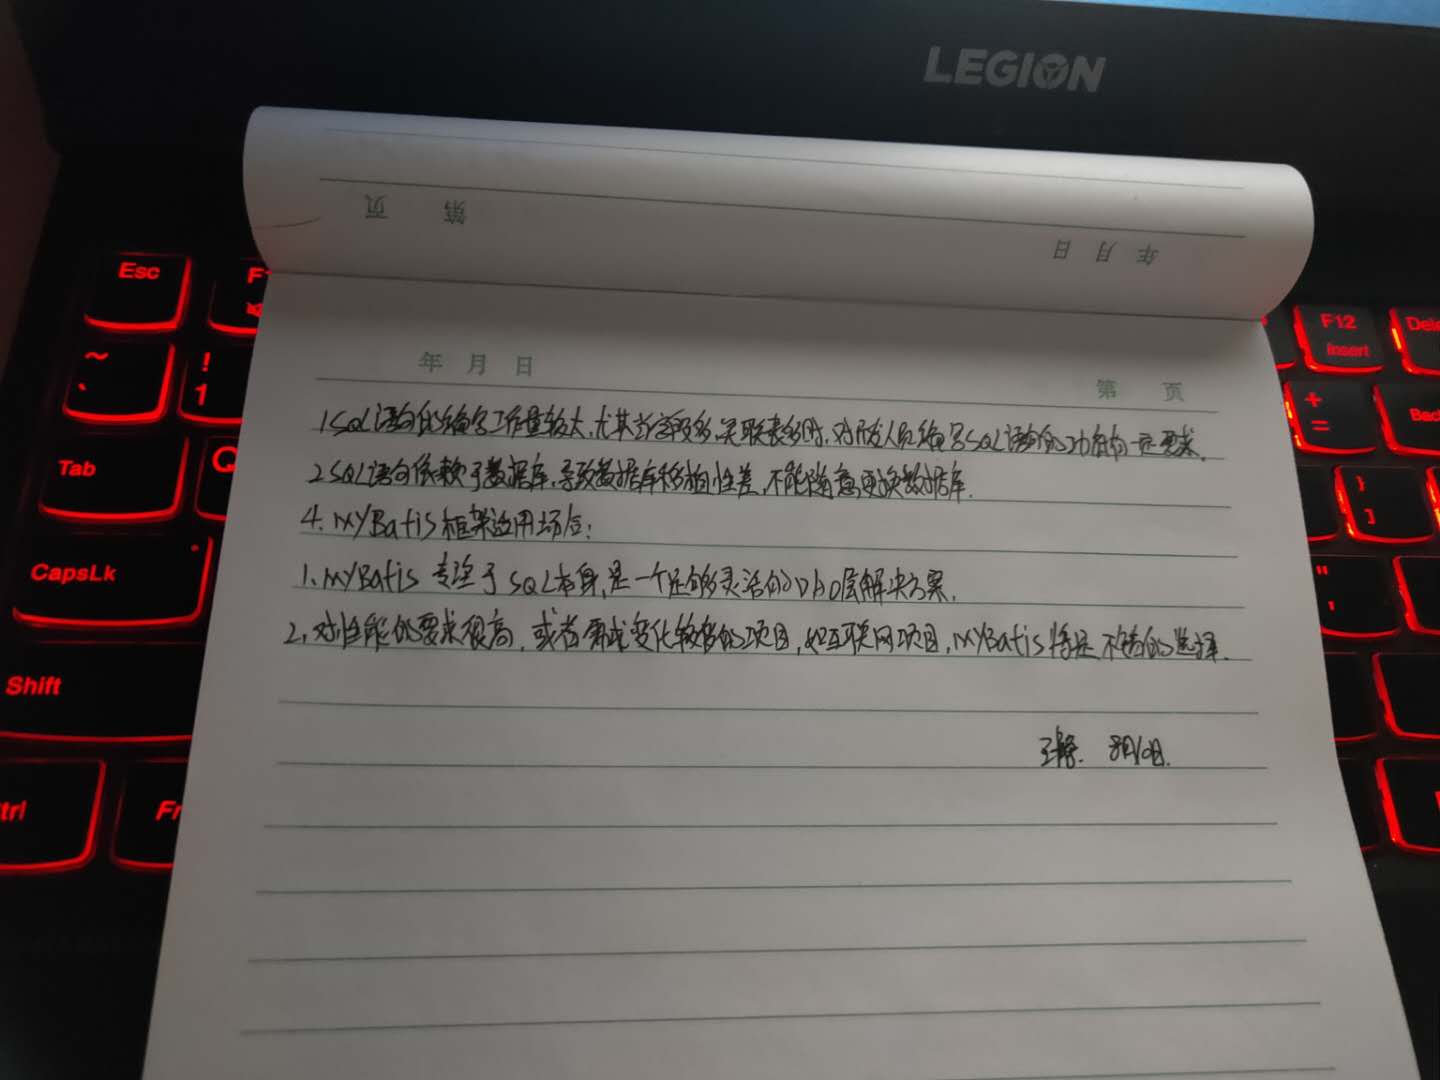 LEGION
第 页
年 月 日
Esc
F1
F12
Insert
Dele
~
`
!
1
+
=
Bac
Tab
Q
}
]
CapsLk
"
'
Shift
trl
Fn
年 月 日
第 页
1.SQL语句的编写工作量较大,尤其当字段多,关联表多时,对开发人员编写SQL语句的功底有一定要求.
2.SQL语句依赖于数据库,导致数据库移植性差,不能随意更换数据库.
4.MYBatis框架适用场合:
1.MYBatis 专注于SQL本身,是一个足够灵活的DAO层解决方案.
2.对性能的要求很高,或者需求变化较多的项目,如互联网项目,MYBatis将是不错的选择.